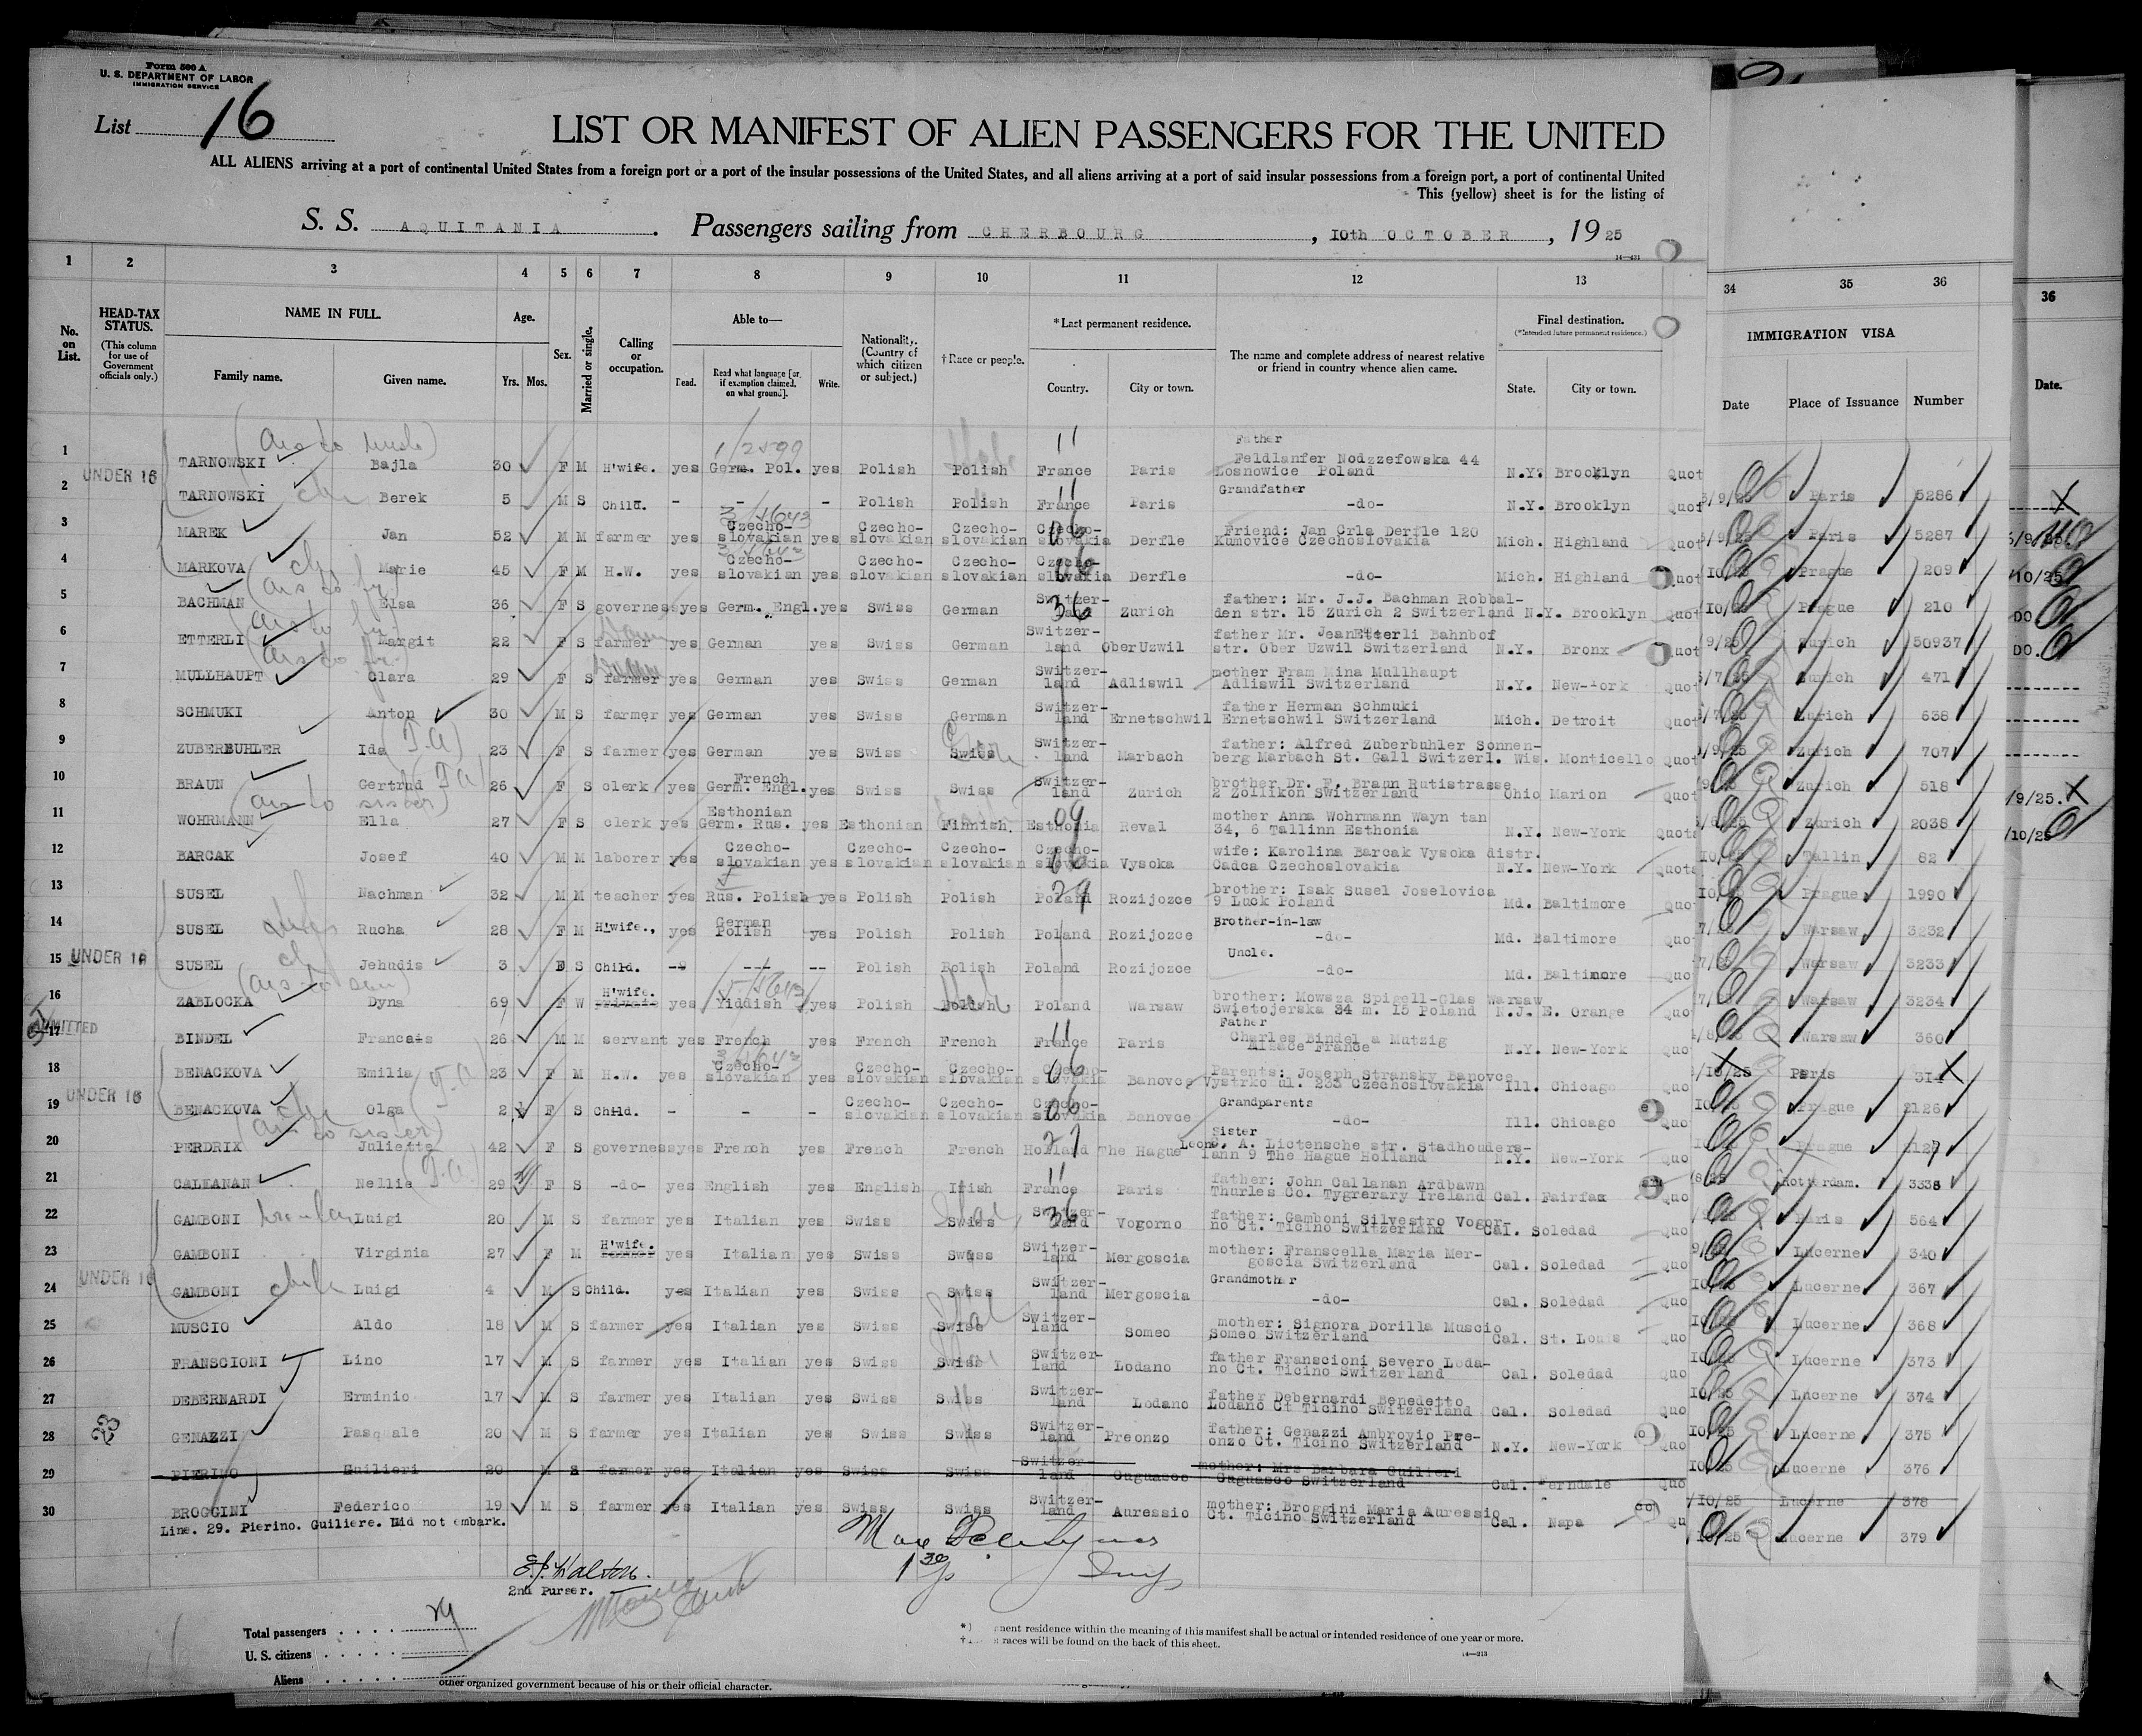 Form 500 A
U. S. DEPARTMENT OF LABOR
IMMIGRATION SERVICE
List 16
LIST OR MANIFEST OF ALIEN PASSENGERS FOR THE UNITED
ALL ALIENS arriving at a port of continental United States from a foreign port or a port of the insular possessions of the United States, and all aliens arriving at a port of said insular possessions from a foreign port, a port of continental United
This (yellow) sheet is for the listing of
S. S. AQUITANIA. Passengers sailing from CHERBOURG, 10th OCTOBER, 1925
1 2 3 4 5 6 7 8 9 10 11 12 13 34 35 36 36
No. on List.
HEAD-TAX STATUS.
(This column for use of Government officials only.)
NAME IN FULL.
Family name. Given name.
Age.
Yrs. Mos.
Sex.
Married or single.
Calling or occupation.
Able to—
Read. Read what language [or, if exemption claimed, on what ground]. Write.
Nationality. (Country of which citizen or subject.)
†Race or people.
*Last permanent residence.
Country. City or town.
The name and complete address of nearest relative or friend in country whence alien came.
Final destination.
(*Intended future permanent residence.)
State. City or town.
IMMIGRATION VISA
Date Place of Issuance Number
Date.
1 TARNOWSKI Bajla 30 F M H'wife. yes Germ. Pol. yes Polish Polish France Paris Father Feldlanfer Nodzzefowska 44 Losnowice Poland N.Y. Brooklyn Quot
UNDER 16
2 TARNOWSKI Berek 5 M S Child. - - - Polish Polish France Paris Grandfather -do- N.Y. Brooklyn Quot Paris 5286
3 MAREK Jan 52 M M farmer yes Czecho-slovakian yes Czecho-slovakian Czecho-slovakian Czecho-slovakia Derfle Friend: Jan Crla Derfle 120 Kumovice Czechoslovakia Mich. Highland Quot Paris 5287
4 MARKOVA Marie 45 F M H.W. yes Czecho-slovakian yes Czecho-slovakian Czecho-slovakian Czecho-slovakia Derfle -do- Mich. Highland Quot Prague 209
5 BACHMAN Elsa 36 F S governess yes Germ. Engl. yes Swiss German Switzer-land Zurich father: Mr. J.J. Bachman Robbal-den str. 15 Zurich 2 Switzerland N.Y. Brooklyn Quot Prague 210
6 ETTERLI Margit 22 F S farmer yes German yes Swiss German Switzer-land OberUzwil father Mr. JeanEtterli Bahnhof str. Ober Uzwil Switzerland N.Y. Bronx Quot Zurich 50937
7 MULLHAUPT Clara 29 F S farmer yes German yes Swiss German Switzer-land Adliswil mother Fram Mina Mullhaupt Adliswil Switzerland N.Y. New-York Quot Zurich 471
8 SCHMUKI Anton 30 M S farmer yes German yes Swiss German Switzer-land Ernetschwil father Herman Schmuki Ernetschwil Switzerland Mich. Detroit Quot Zurich 638
9 ZUBERBUHLER Ida 23 F S farmer yes German yes Swiss Swiss Switzer-land Marbach father: Alfred Zuberbuhler Sonnen-berg Marbach St. Gall Switzerl. Wis. Monticello Quot Zurich 707
10 BRAUN Gertrud 26 F S clerk yes French Germ. Engl. yes Swiss Swiss Switzer-land Zurich brother Dr. F. Braun Rutistrasse 2 Zollikon Switzerland Ohio Marion Quot Zurich 518
11 WOHRMANN Ella 27 F S clerk yes Esthonian Germ. Rus. yes Esthonian Finnish. Esthonia Reval mother Anna Wohrmann Wayn tan 34, 6 Tallinn Esthonia N.Y. New-York Quota Zurich 2038
12 BARCAK Josef 40 M M laborer yes Czecho-slovakian yes Czecho-slovakian Czecho-slovakian Czecho-slovakia Vysoka wife: Karolina Barcak Vysoka distr. Cadca Czechoslovakia N.Y. New-York Quota Tallin 82
13 SUSEL Nachman 32 M M teacher yes Rus. Polish yes Polish Polish Poland Rozijozce brother: Isak Susel Joselovica 9 Luck Poland Md. Baltimore Quo Prague 1990
14 SUSEL Rucha 28 F M H'wife., yes German Polish yes Polish Polish Poland Rozijozce Brother-in-law -do- Md. Baltimore Quo Warsaw 3232
15 UNDER 16 SUSEL Jehudis 3 F S Child. -- --- -- Polish Polish Poland Rozijozce Uncle. -do- Md. Baltimore Quo Warsaw 3233
16 ZABLOCKA Dyna 69 F W H'wife. yes Yiddish yes Polish Polish Poland Warsaw brother: Mowsza Spigell-Glas Warsaw Swietojerska 34 m. 15 Poland N.J. E. Orange Quo Warsaw 3234
ADMITTED
17 BINDEL Francais 26 M M servant yes French yes French French France Paris Father Charles Bindel a Mutzig Alsace France N.Y. New-York Quo Warsaw 360
18 BENACKOVA Emilia 23 F M H.W. yes Czecho-slovakian yes Czecho-slovakian Czecho-slovakian Czecho-slovakia Banovce Parents: Joseph Stransky Banovce Vystrko ul. 233 Czechoslovakia Ill. Chicago Quo Paris 314
UNDER 16
19 BENACKOVA Olga 2 F S Child. - - - Czecho-slovakian Czecho-slovakian Czecho-slovakia Banovce Grandparents -do- Ill. Chicago Quo Prague 2126
20 PERDRIX Juliette 42 F S governess yes French yes French French Holland The Hague Sister Leon. A. Lictensche str. Stadhouders-lann 9 The Hague Holland N.Y. New-York Quo Prague 2127
21 CALLANAN Nellie 29 F S -do- yes English yes English Irish France Paris father: John Callanan Ardbawn Thurles Co. Tygrerary Ireland Cal. Fairfax Quo Rotterdam. 3338
22 GAMBONI Luigi 20 M S farmer yes Italian yes Swiss Swiss Switzer-land Vogorno father: Gamboni Silvestro Vogor-no Ct. Ticino Switzerland Cal. Soledad Quo Paris 564
23 GAMBONI Virginia 27 F M H'wife. yes Italian yes Swiss Swiss Switzer-land Mergoscia mother: Franscella Maria Mer-goscia Switzerland Cal. Soledad Quo Lucerne 340
UNDER 16
24 GAMBONI Luigi 4 M S Child. yes Italian yes Swiss Swiss Switzer-land Mergoscia Grandmother -do- Cal. Soledad Quo Lucerne 367
25 MUSCIO Aldo 18 M S farmer yes Italian yes Swiss Swiss Switzer-land Someo mother: Signora Dorilla Muscio Someo Switzerland Cal. St. Louis Quo Lucerne 368
26 FRANSCIONI Lino 17 M S farmer yes Italian yes Swiss Swiss Switzer-land Lodano father Franscioni Severo Loda-no Ct. Ticino Switzerland Cal. Soledad Quo Lucerne 373
27 DEBERNARDI Erminio 17 M S farmer yes Italian yes Swiss Swiss Switzer-land Lodano father Debernardi Benedetto Lodano Ct Ticino Switzerland Cal. Soledad Quo Lucerne 374
28 GENAZZI Pasquale 20 M S farmer yes Italian yes Swiss Swiss Switzer-land Preonzo father: Genazzi Ambrovio Pre-onzo Ct. Ticino Switzerland N.Y. New-York Quo Lucerne 375
29 PIERINO Guilieri 20 M S farmer yes Italian yes Swiss Swiss Switzer-land Guguasco mother: Mrs Barbara Guilieri Guguasco Switzerland Cal. Ferndale Quo Lucerne 376
30 BROGGINI Federico 19 M S farmer yes Italian yes Swiss Swiss Switzer-land Auressio mother: Broggini Maria Auressio Ct. Ticino Switzerland Cal. Napa Qu /10/25 Lucerne 378
Line. 29. Pierino. Guiliere. Did not embark.
10/25 Lucerne 379
2nd Purser.
Total passengers
U. S. citizens
Aliens
nent residence within the meaning of this manifest shall be actual or intended residence of one year or more.
races will be found on the back of this sheet.
14—213
other organized government because of his or their official character.